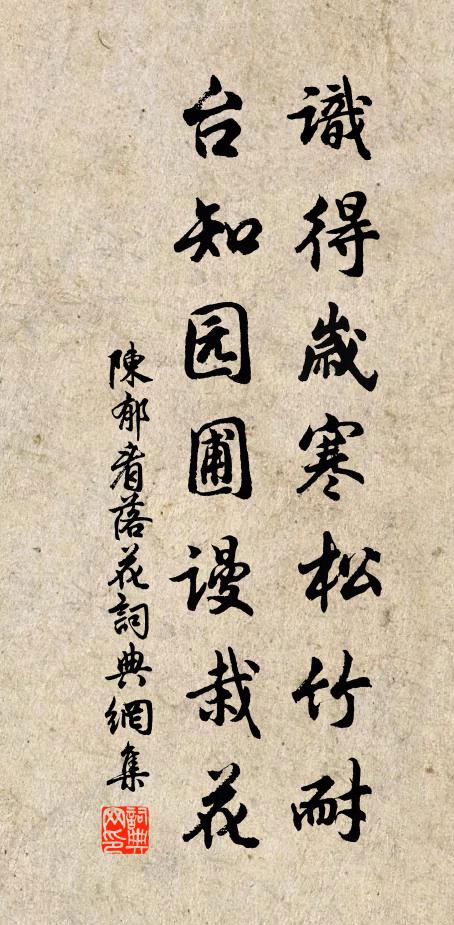 識得歲寒松竹耐
台知园圃谩栽花
陳郁看落花詞典網集
詞典网印